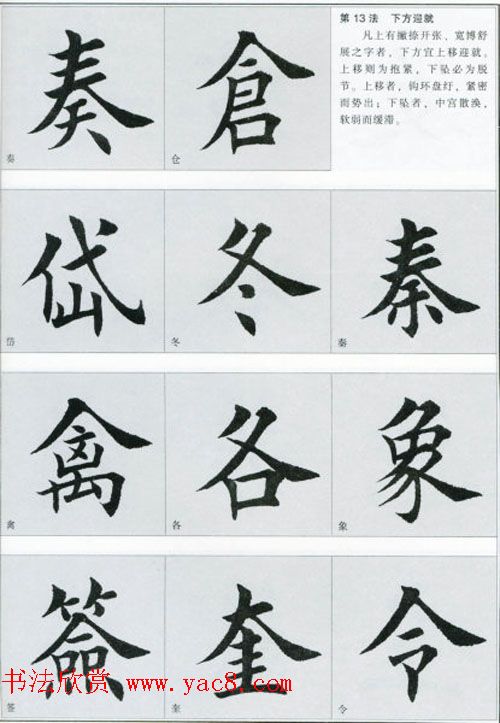 第13法 下方迎就
凡上有撇捺开张、宽博舒
展之字者，下方宜上移迎就。
上移则为抱紧，下坠必为脱
节。上移者，钩环盘纡，紧密
而势出；下坠者，中宫散涣，
软弱而缓滞。
奏 倉
奏 仓
岱 冬 秦
岱 冬 秦
禽 各 象
禽 各 象
签 奎 令
签 奎 令
书法欣赏 www.yac8.com